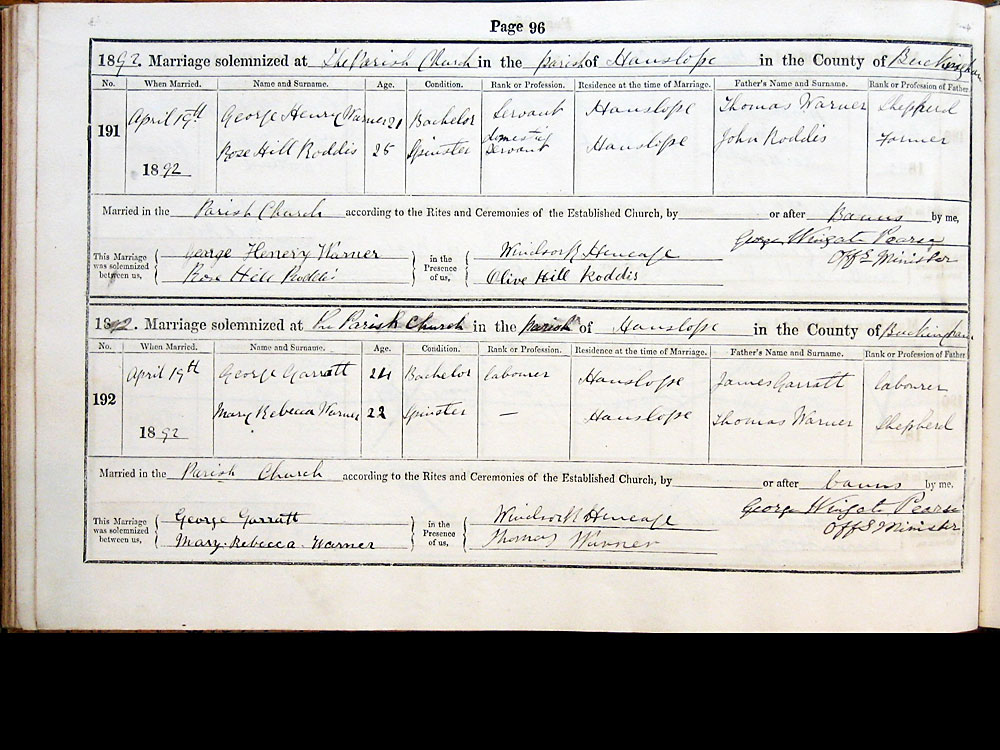 Page 96
1892. Marriage solemnized at The Parish Church in the parish of Hanslope in the County of Buckingham
No. When Married. Name and Surname. Age. Condition. Rank or Profession. Residence at the time of Marriage. Father's Name and Surname. Rank or Profession of Father.
191 April 19th George Henry Warner 21 Bachelor Servant Hanslope Thomas Warner Shepherd
Rose Hill Roddis 25 Spinster domestic Servant Hanslope John Roddis Farmer
1892
Married in the Parish Church according to the Rites and Ceremonies of the Established Church, by or after Banns by me,
George Wingate Pearse
Off G Minister
This Marriage was solemnized between us, George Henery Warner in the Presence of us, Windsor Heneage
Rose Hill Roddis Olive Hill Roddis
1892. Marriage solemnized at the Parish Church in the Parish of Hanslope in the County of Buckingham
No. When Married. Name and Surname. Age. Condition. Rank or Profession. Residence at the time of Marriage. Father's Name and Surname. Rank or Profession of Father
192 April 19th George Garratt 24 Bachelor labourer Hanslope James Garratt labourer
Mary Rebecca Warner 22 Spinster — Hanslope Thomas Warner Shepherd
1892
Married in the Parish Church according to the Rites and Ceremonies of the Established Church, by or after banns by me,
George Wingate Pearse
Off G Minister
This Marriage was solemnized between us, George Garratt in the Presence of us, Windsor Heneage
Mary Rebecca Warner Thomas Warner